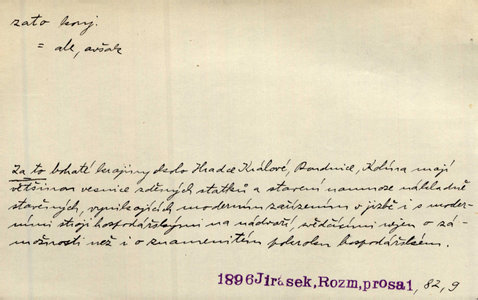 zato konj.
= ale, avšak
Za to bohaté krajiny okolo Hradce Králové, Roudnice, Kolína mají
většinou vesnice zděných statků a stavení namnoze nákladně
stavěných, vynikajících moderním zařízením v jizbě i s moder-
ními stroji hospodářskými na nádvoří, svědčícími nejen o zá-
možnosti než i o znamenitém pokroku hospodářském.
1896 Jirásek, Rozm, prosa 1, 82, 9